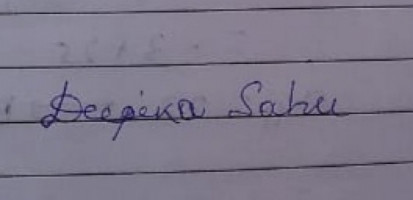 Deepika Sahu